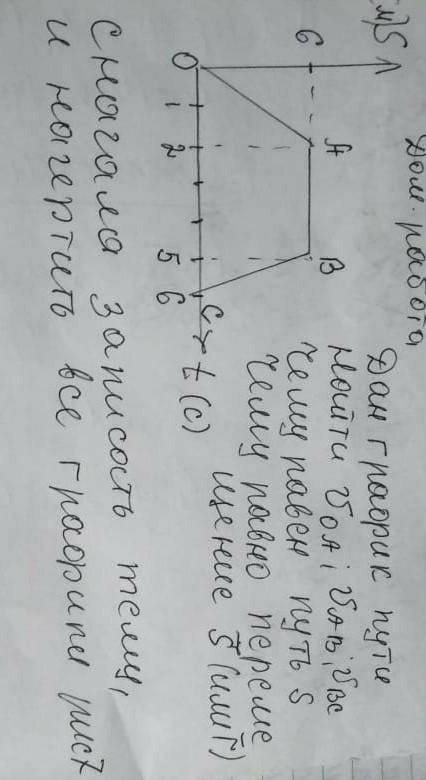 Дом. работа
S(м)
6
A
B
0
1
2
5
6
C
t (c)
Дан график пути
найти υOA; υAB; υBC
чему равен путь S
чему равно переме
щение S⃗ (или r⃗)
сначала записать тему,
и начертить все графики рис7